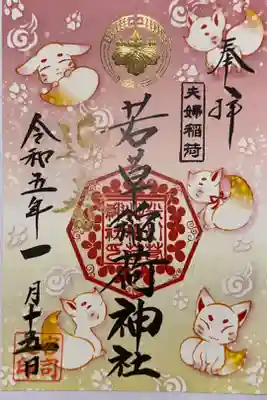 奉拝
夫婦稲荷
若草稲荷神社
令和五年一月十五日